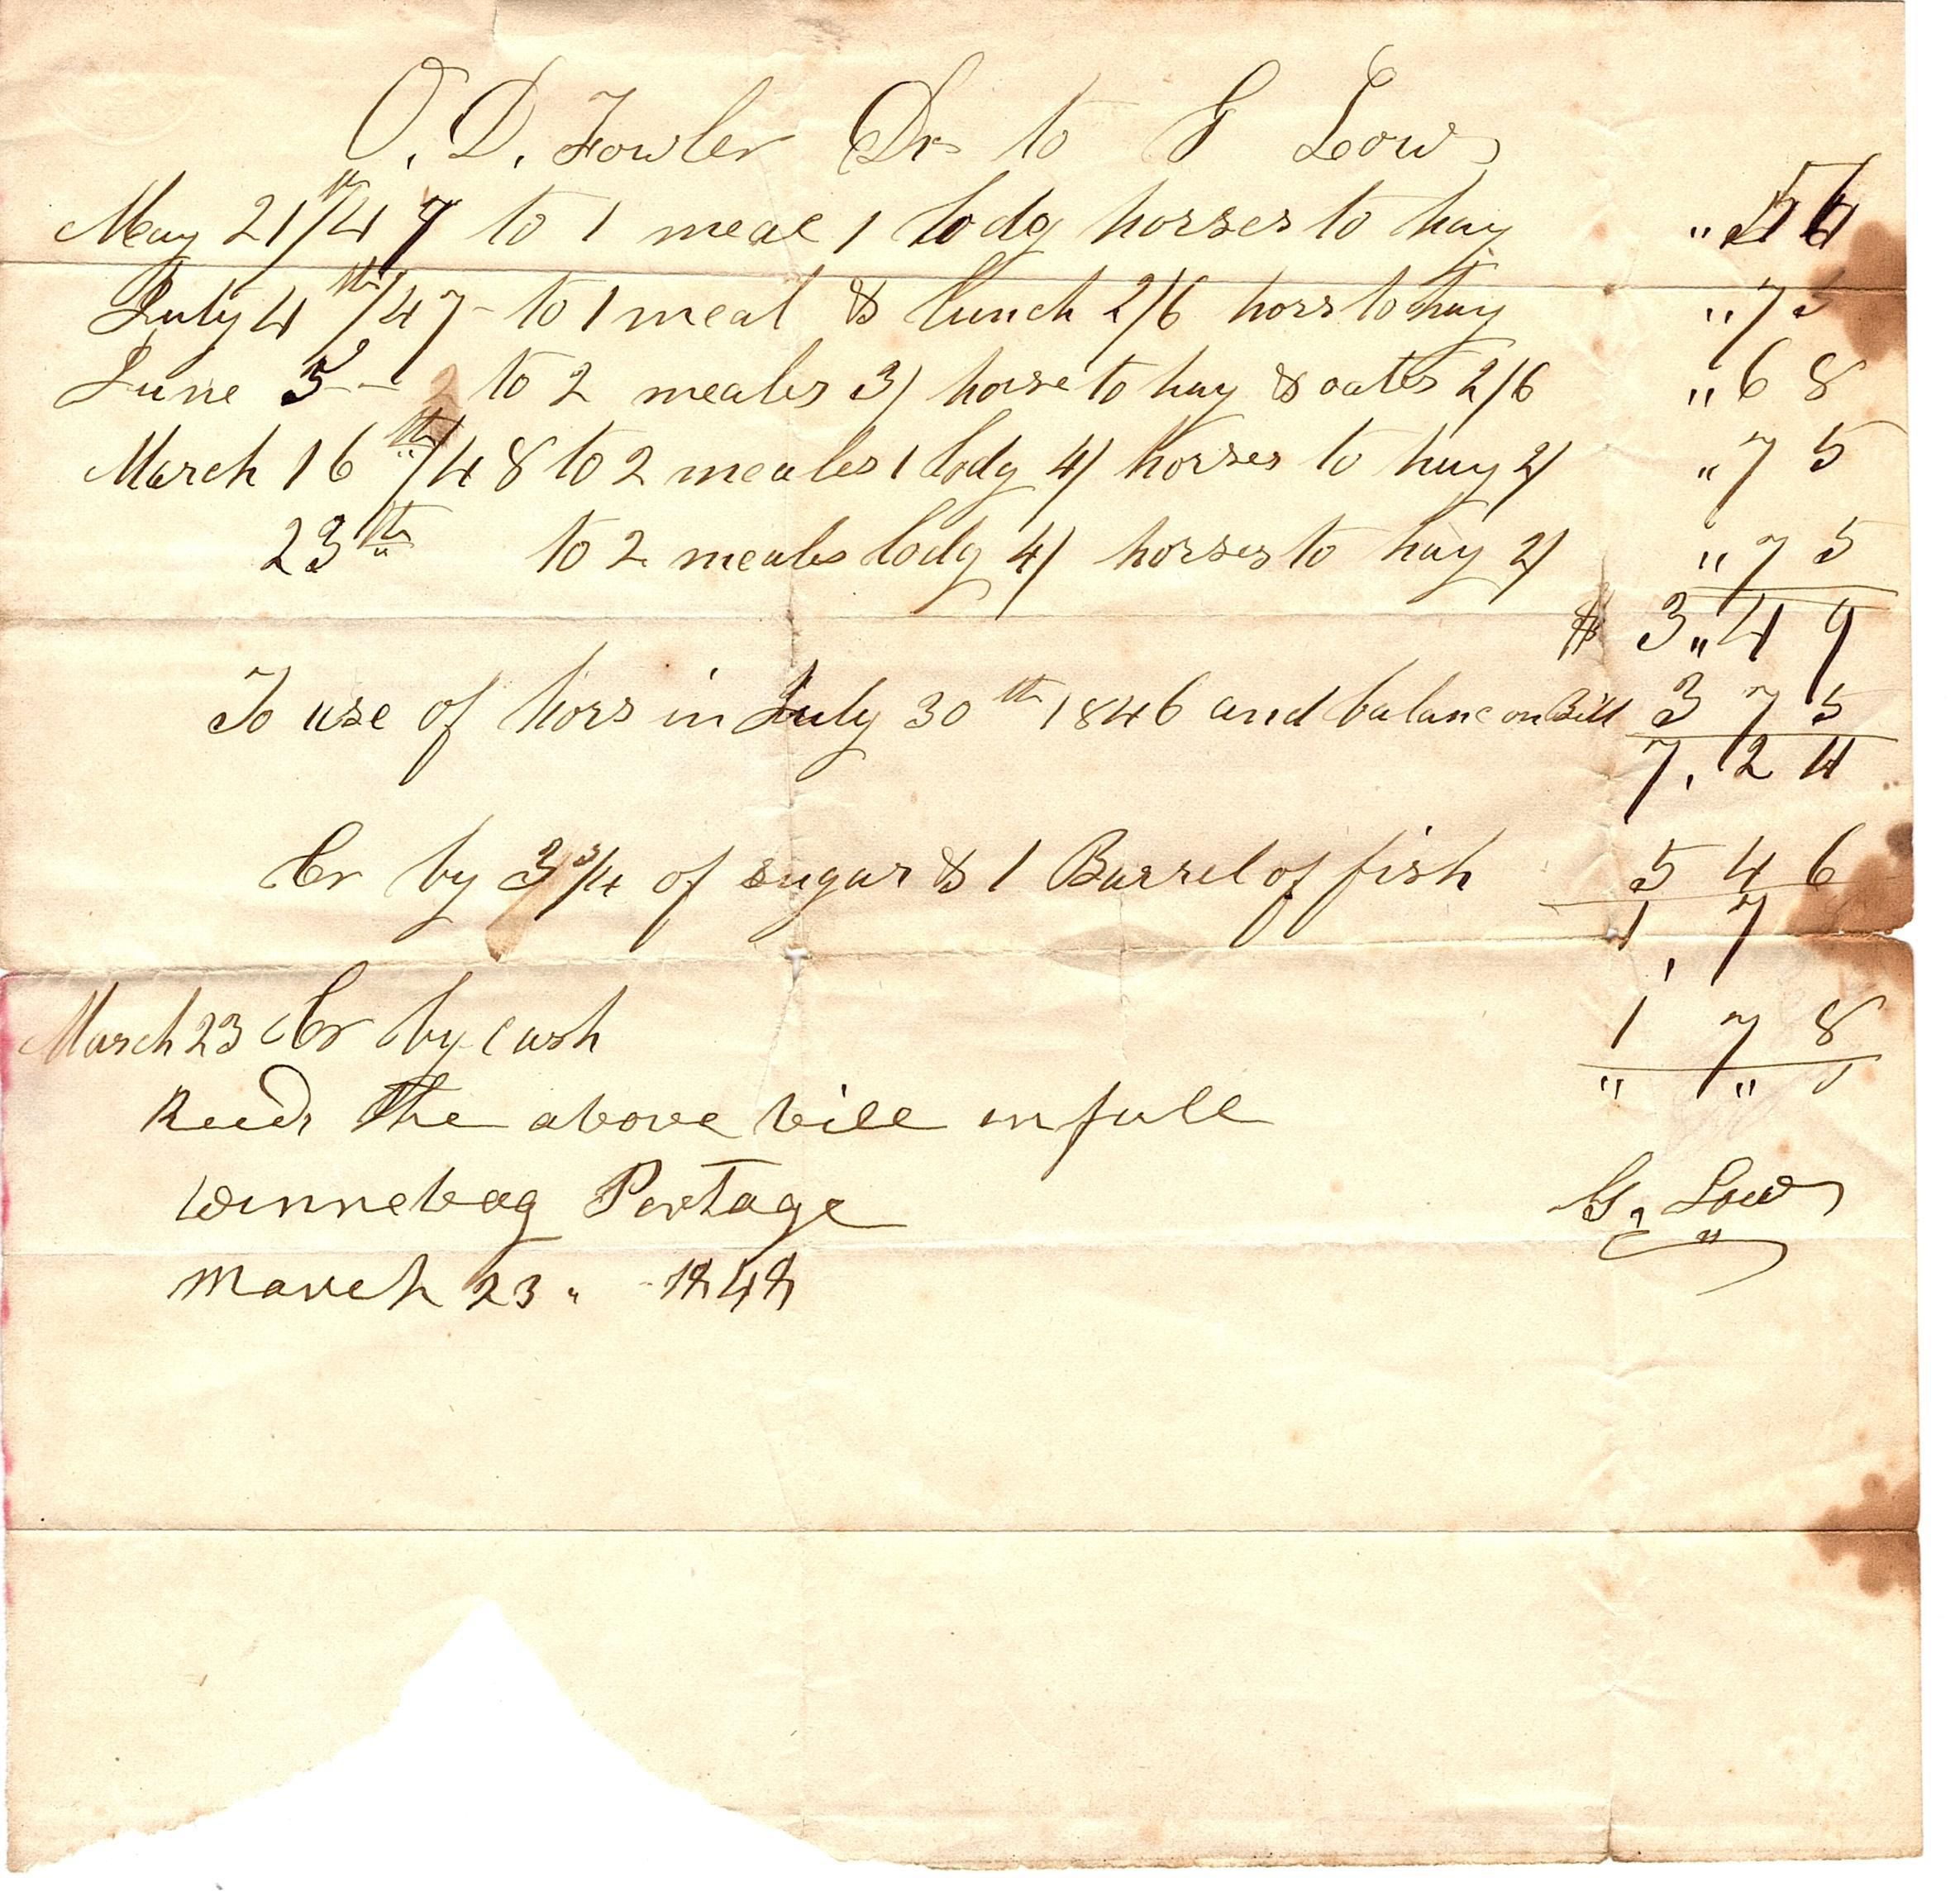 O. D. Fowler Dr to G Low
May 21th/47 to 1 meal 1 lodg horses to hay " 56
July 4th/47 - to 1 meal & lunch 2/6 hors to hay " 75
June 5 - to 2 meales 3/ horse to hay & oates 2/6 " 68
March 16th/48 to 2 meales 1 lodg 4/ horses to hay 2/ " 75
23th to 2 meales lodg 4/ horses to hay 2/ " 75
$ 3 " 49
To use of hors in July 30th 1846 and balanc on Bill 3 75
7, 24
Cr by 3 3/4 of sugar & 1 Barrel of fish 5 46
1, 7
March 23 Cr by cash 1 78
" "
Recd the above bill in full
Winnebag Portage G. Low
March 23 " 1848